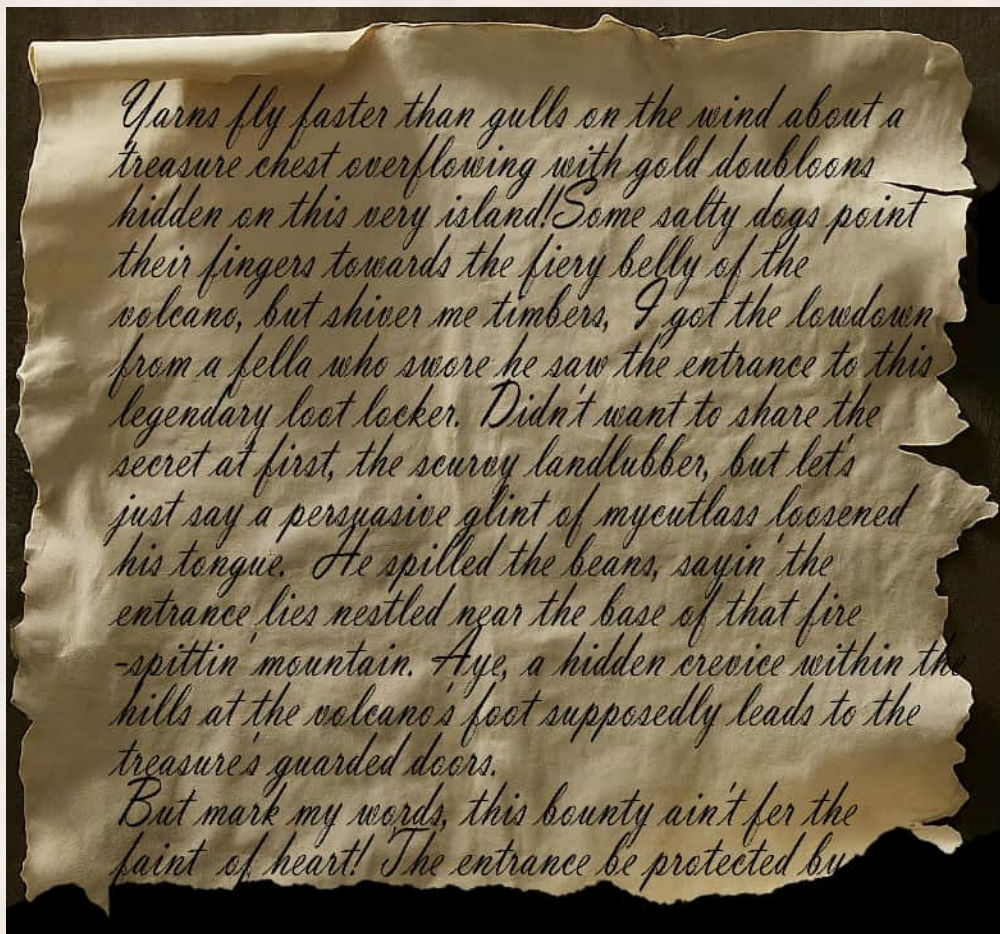 Yarns fly faster than gulls on the wind about a
treasure chest overflowing with gold doubloons
hidden on this very island!Some salty dogs point
their fingers towards the fiery belly of the
volcano, but shiver me timbers, I got the lowdown
from a fella who swore he saw the entrance to this
legendary loot locker. Didn't want to share the
secret at first, the scurvy landlubber, but let's
just say a persuasive glint of mycutlass loosened
his tongue. He spilled the beans, sayin' the
entrance lies nestled near the base of that fire
-spittin' mountain. Aye, a hidden crevice within the
hills at the volcano's foot supposedly leads to the
treasure's guarded doors.
But mark my words, this bounty ain't fer the
faint of heart! The entrance be protected by